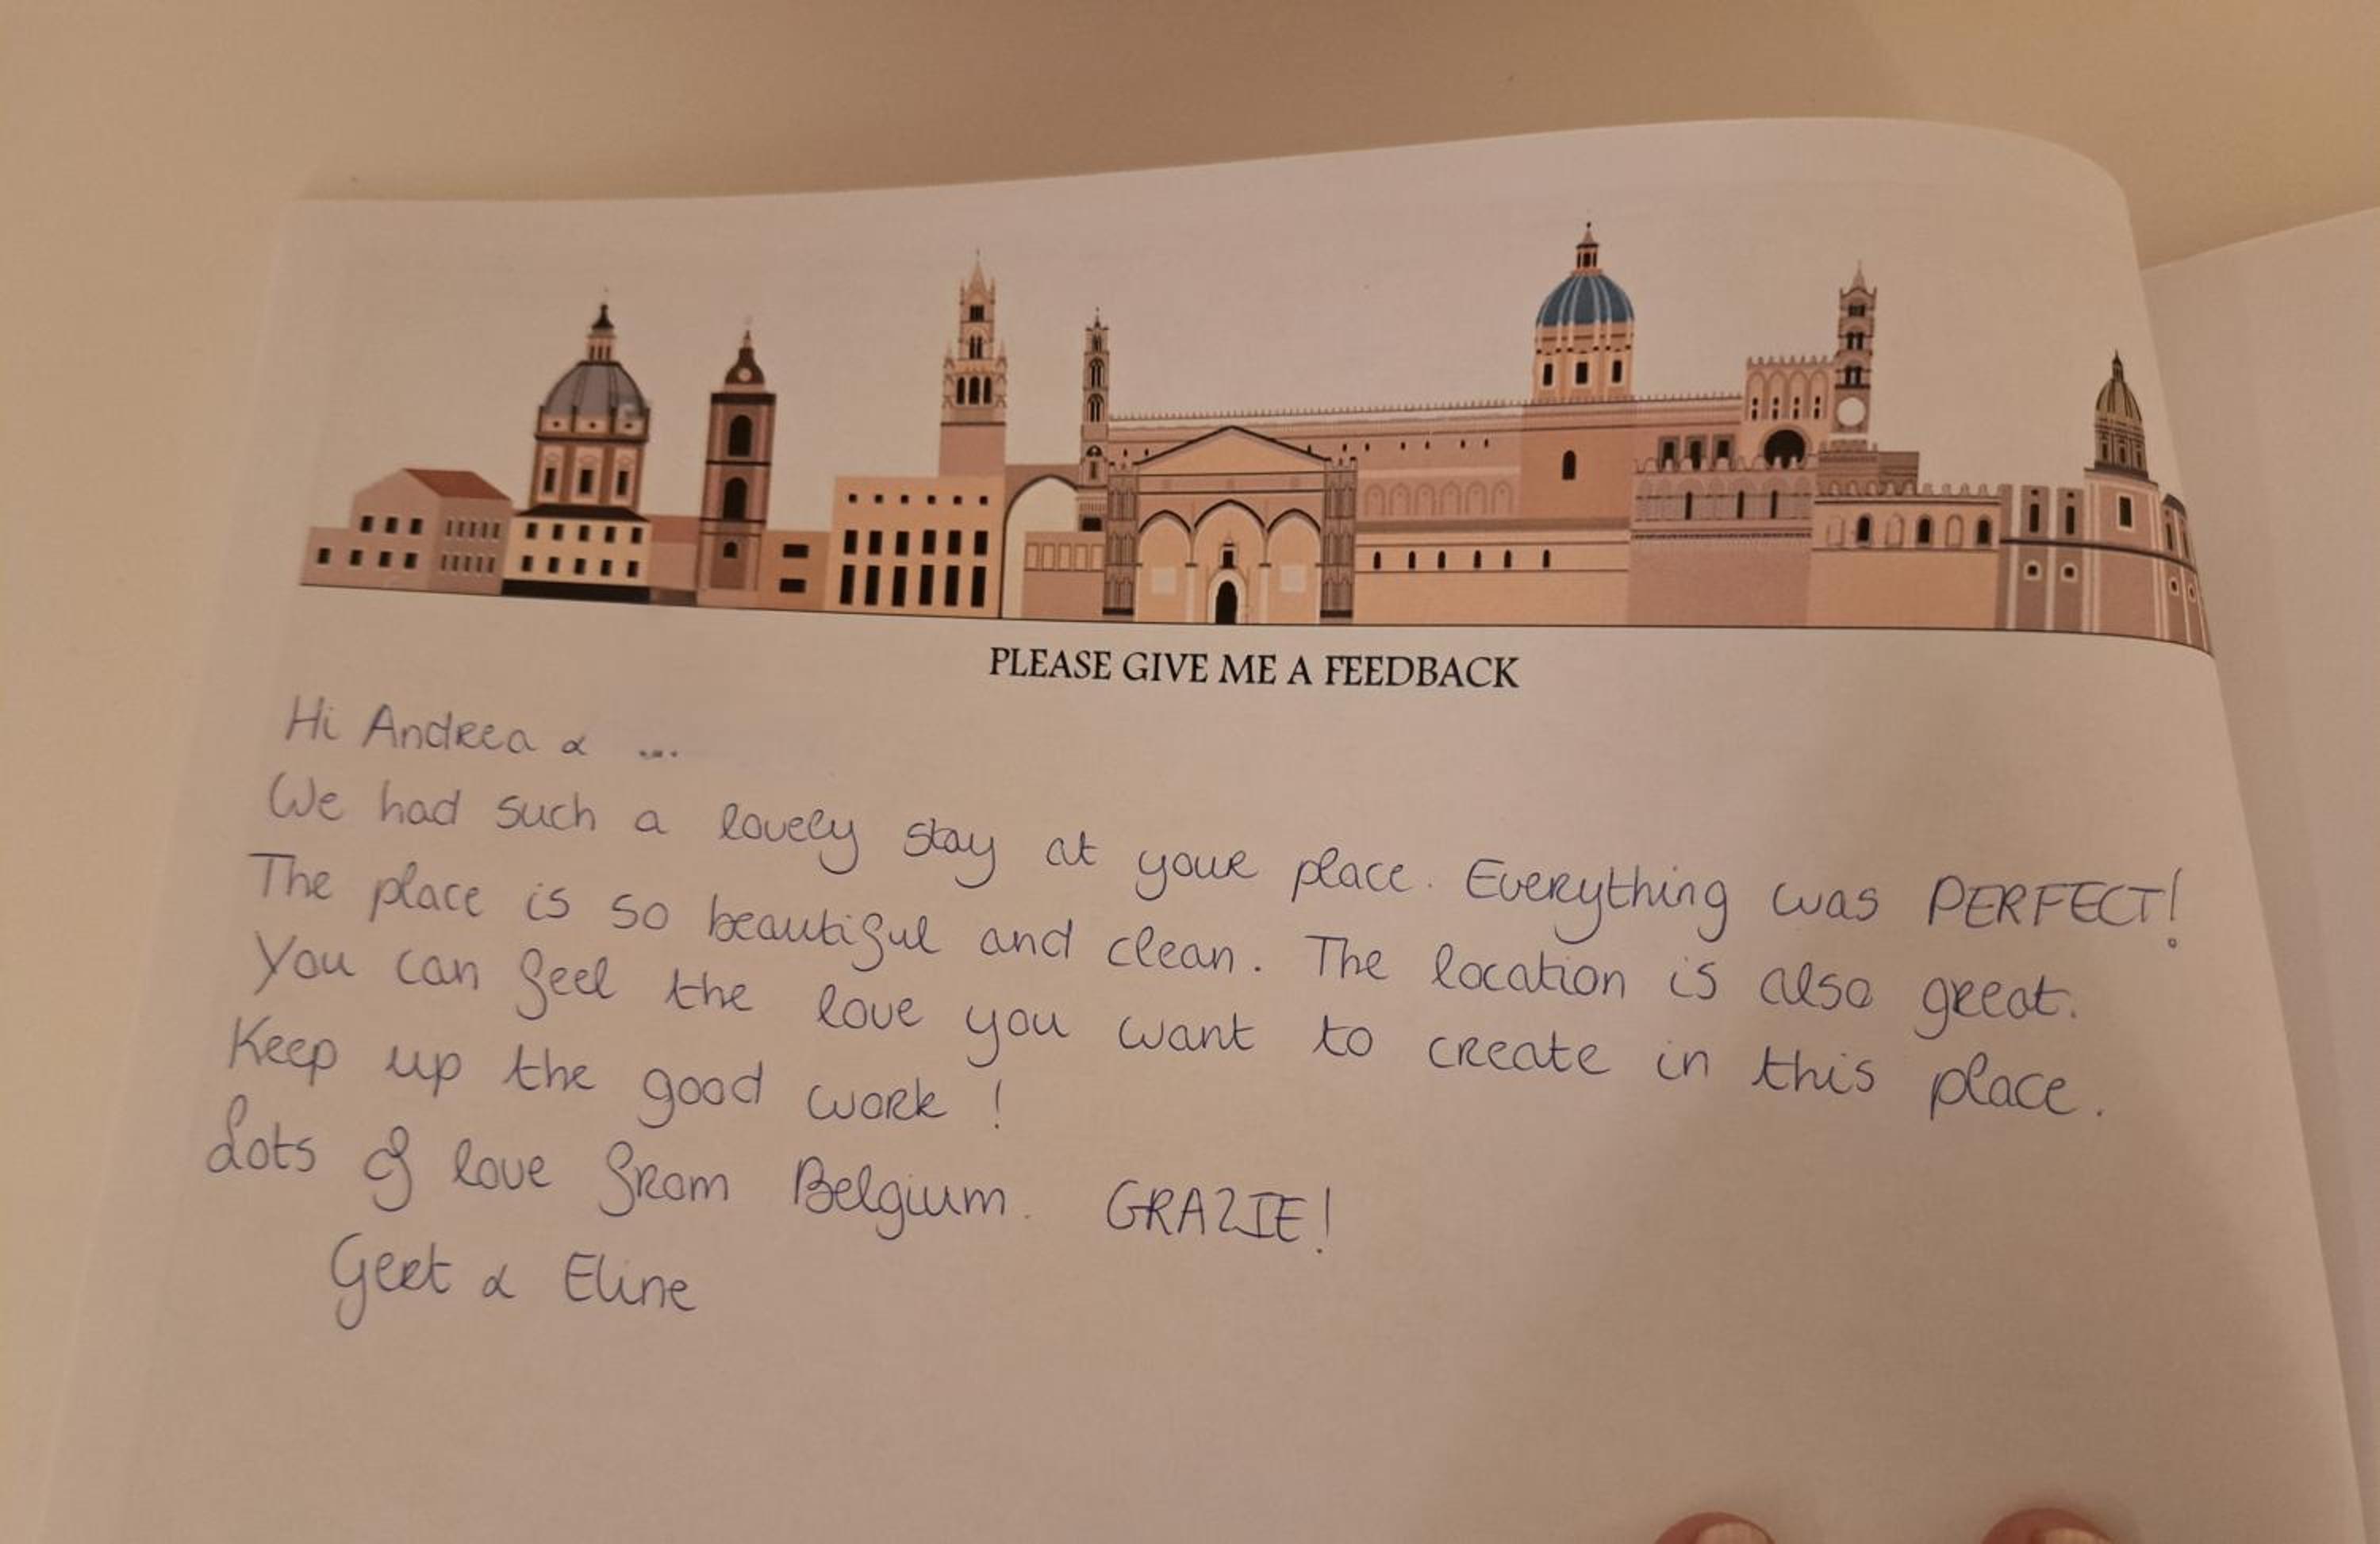 PLEASE GIVE ME A FEEDBACK
Hi Andrea & ...
We had such a lovely stay at your place. Everything was PERFECT!
The place is so beautiful and clean. The location is also great.
You can feel the love you want to create in this place.
Keep up the good work!
Lots of love from Belgium. GRAZIE!
Geert & Eline